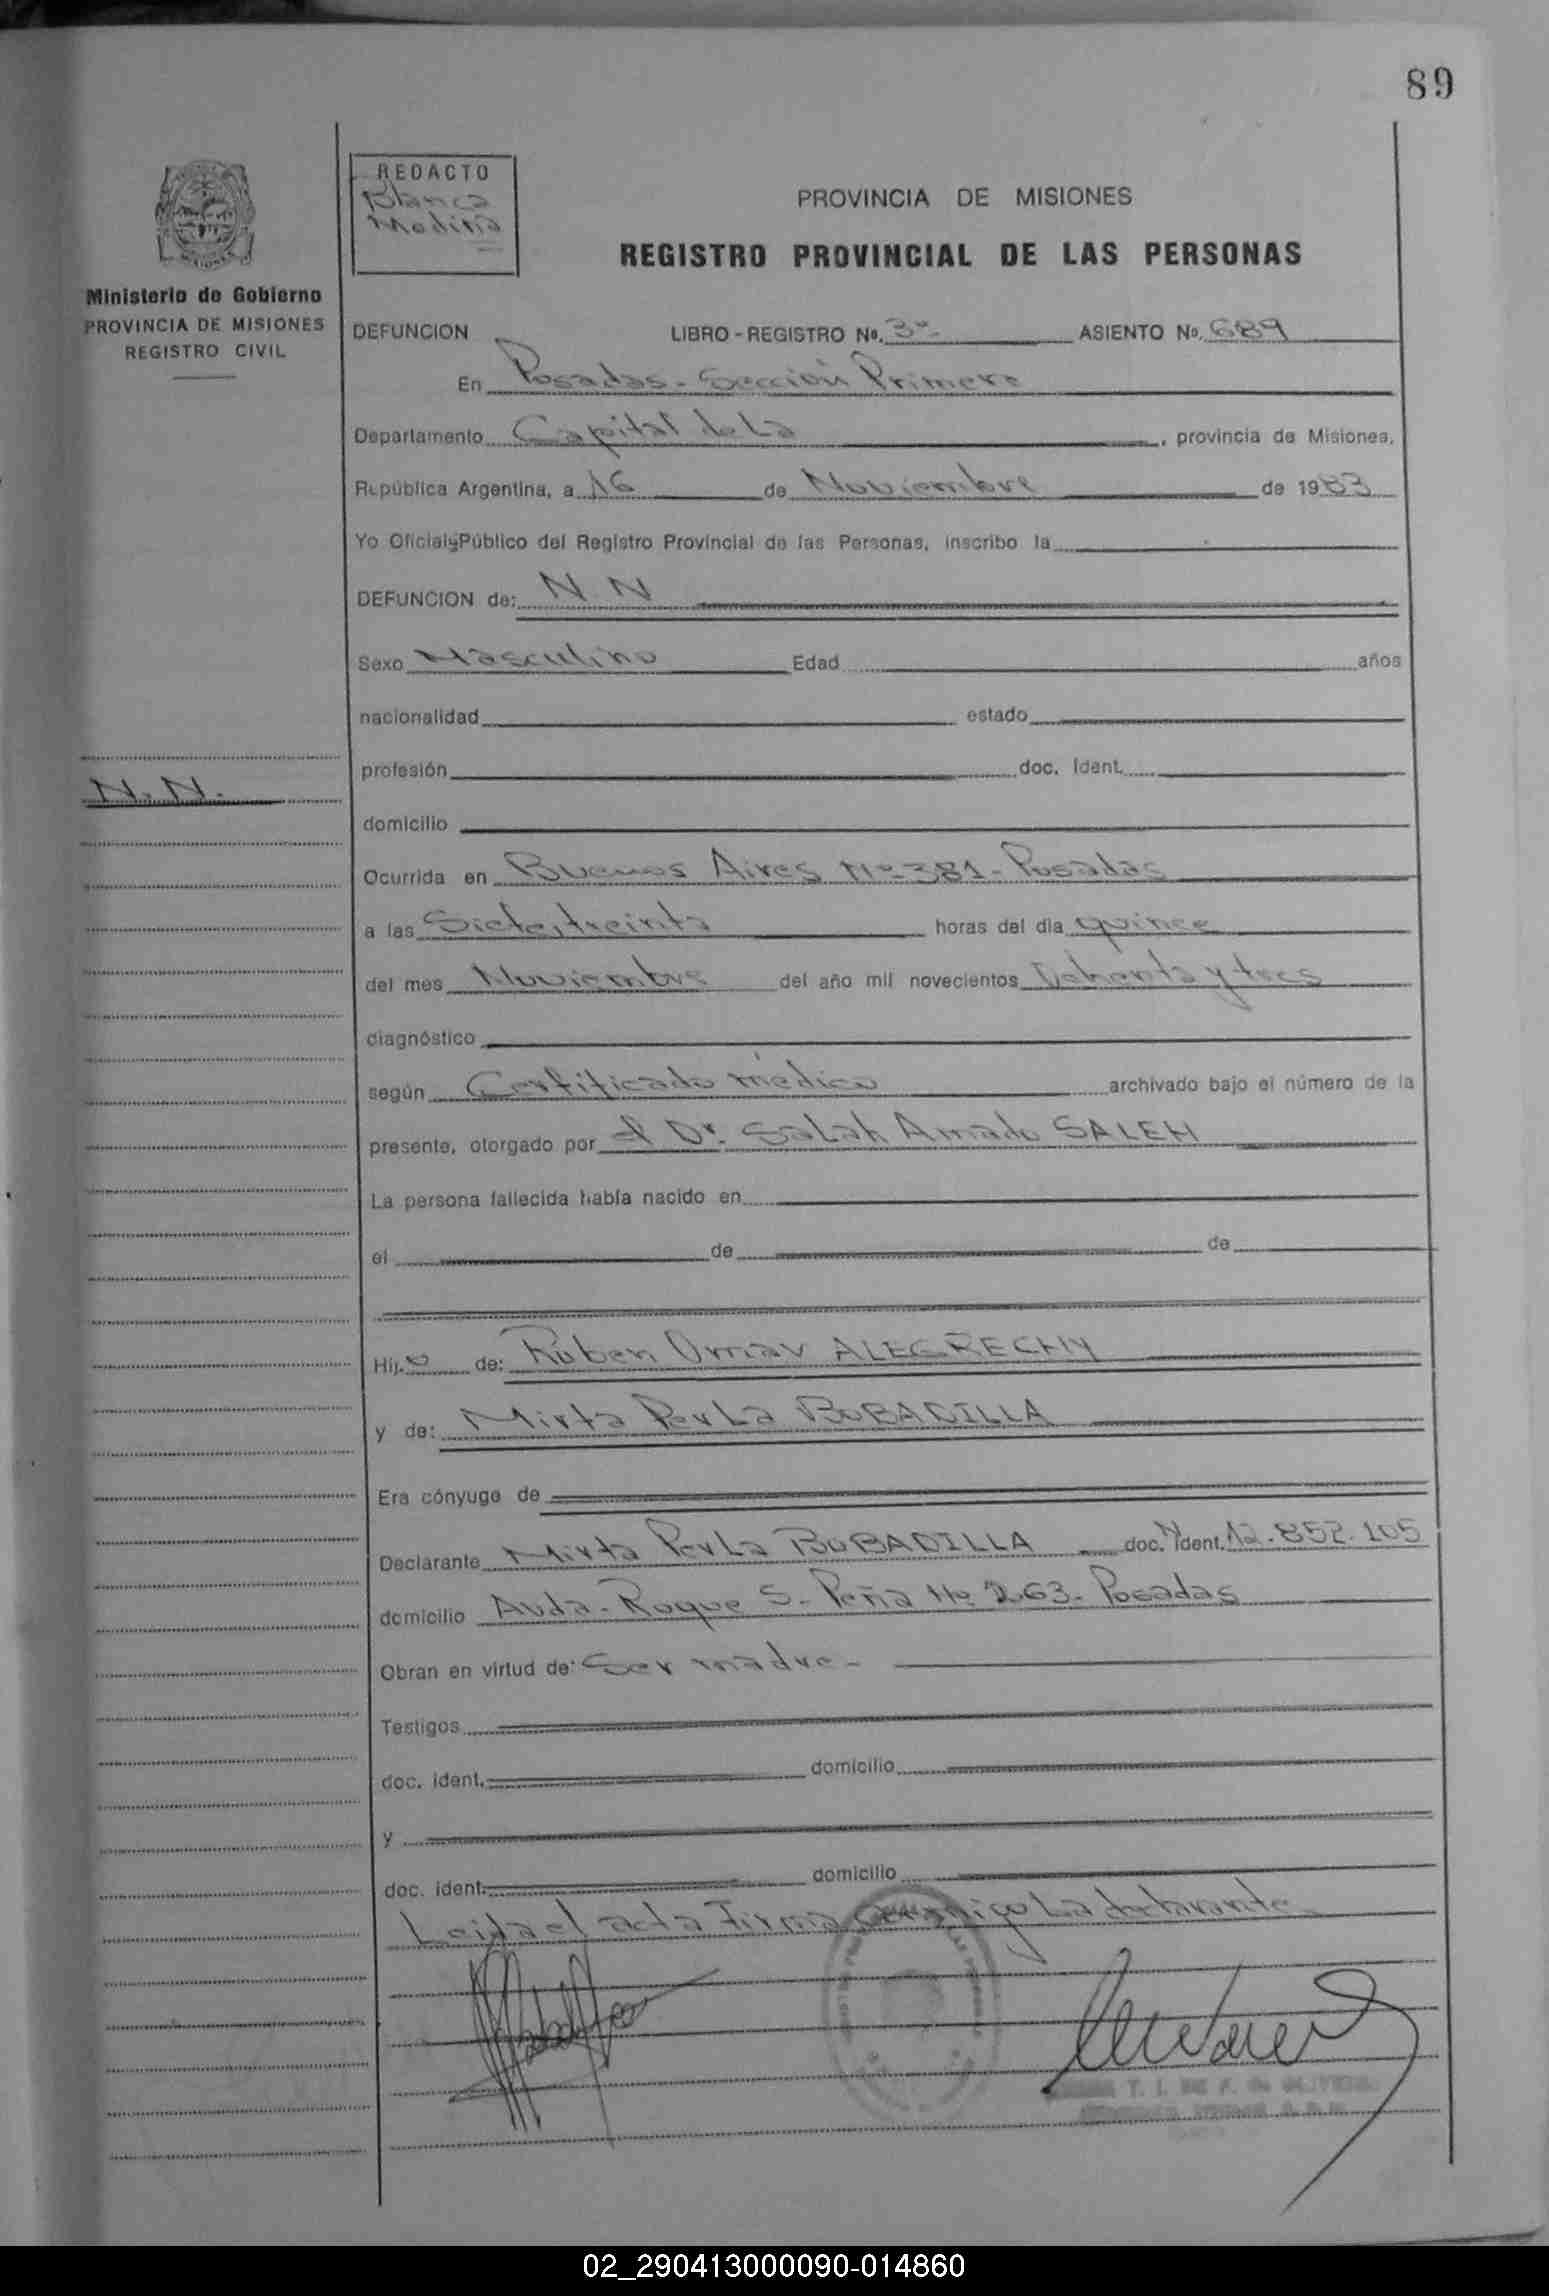 89
REDACTO
Blanca
Medina
Ministerio de Gobierno
PROVINCIA DE MISIONES
REGISTRO CIVIL
PROVINCIA DE MISIONES
REGISTRO PROVINCIAL DE LAS PERSONAS
DEFUNCION LIBRO-REGISTRO No. 3º- ASIENTO No. 689
En Posadas - Sección Primera
Departamento Capital de La, provincia de Misiones,
República Argentina, a 16 de Noviembre de 1983
Yo Oficial Público del Registro Provincial de las Personas, inscribo la
DEFUNCION de: N N
Sexo Masculino Edad años
nacionalidad estado
profesión doc. Ident.
N. N.
domicilio
Ocurrida en Buenos Aires Nº 381 - Posadas
a las Siete, treinta horas del día quince
del mes Noviembre del año mil novecientos Ochenta y tres
diagnóstico
según Certificado médico archivado bajo el número de la
presente, otorgado por el Dr. Salah Amado SALEH
La persona fallecida había nacido en
el de de
Hijo de: Ruben Omar ALEGRECHY
y de: Mirta Perla BOBADILLA
Era cónyuge de
Declarante Mirta Perla BOBADILLA doc. ident. 12.852.105
domicilio Avda. Roque S. Peña Nº 263 - Posadas
Obran en virtud de: Ser madre -
Testigos
doc. ident. domicilio
y
doc. ident. domicilio
Leida el acta Firma Conmigo La declarante.
02_290413000090-014860